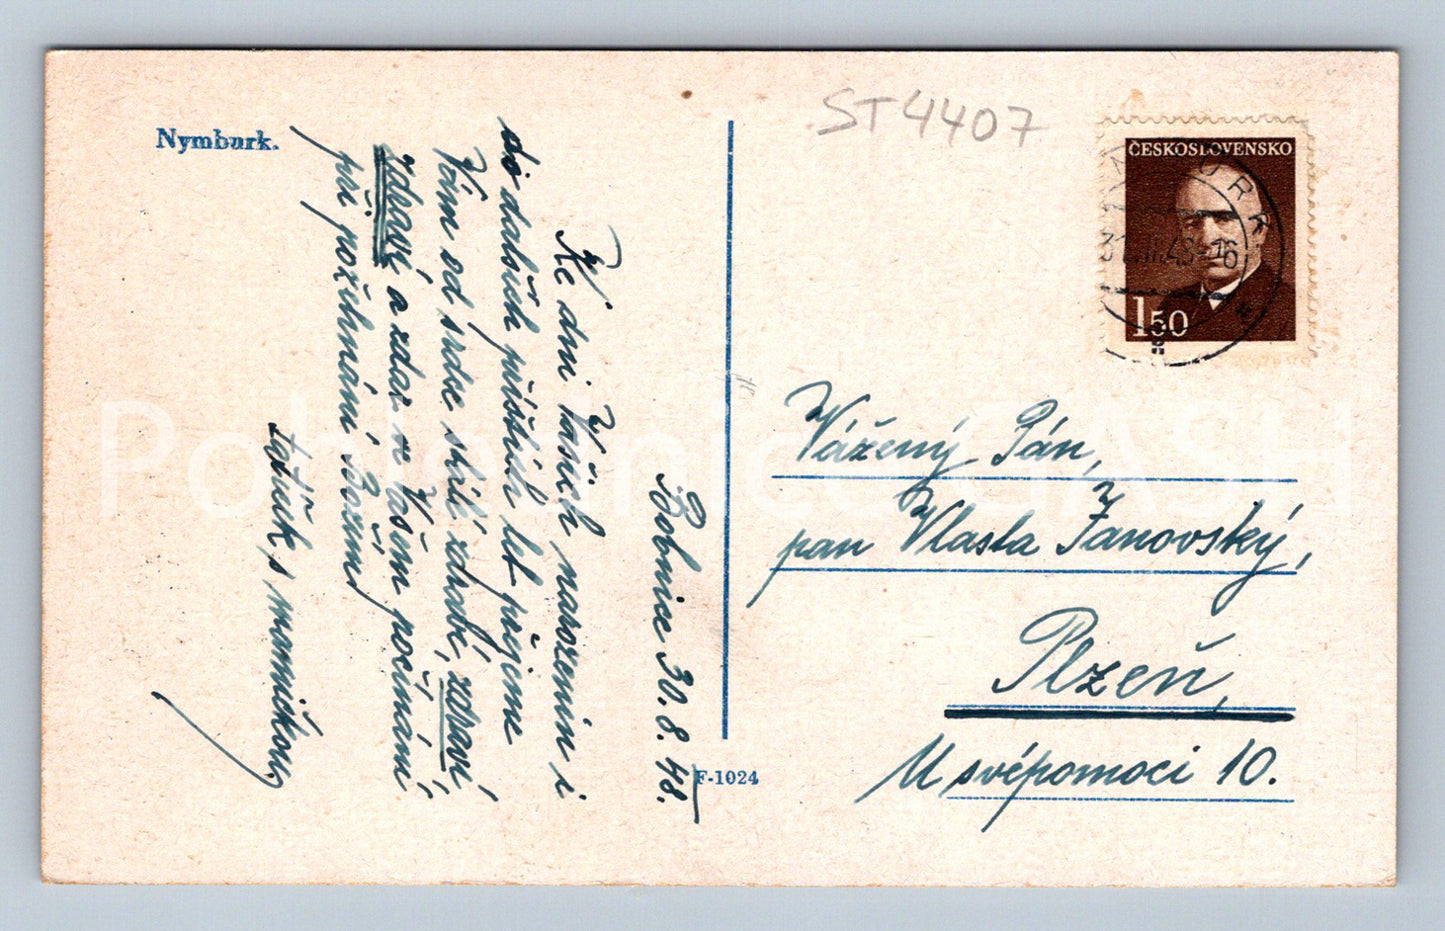 Nymburk.
ST4407
ČESKOSLOVENSKO
1 50
Bobnice 30. 8. 48.
Ke dni Vašich narozenin i
do dalších příštích let přejeme
Vám od srdce stálé zdraví,
zdraví a zdar ve Vašem počínání
při požehnání Božím!
tatínek s maminkou
F-1024
Vážený Pán,
pan Vlasta Janovský,
Plzeň,
U svépomoci 10.
Pohlednice CASH